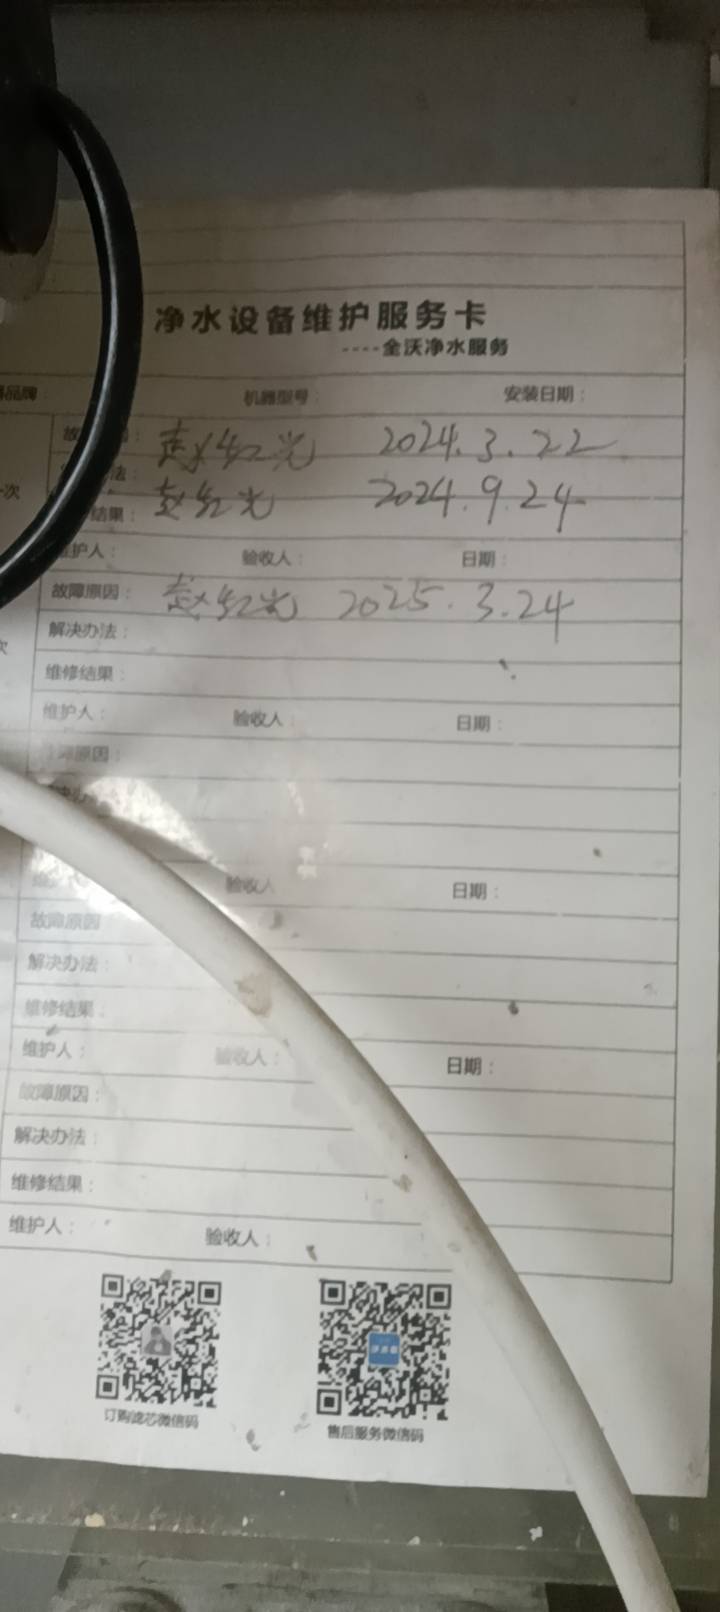 净水设备维护服务卡
----全沃净水服务
品牌： 机器型号： 安装日期：
故 因： 赵红光 2024.3.22
法：
次
赵红光 2024.9.24
结果：
维护人： 验收人： 日期：
故障原因： 赵红光 2025.3.24
解决办法：
次
维修结果：
维护人： 验收人： 日期：
障原因：
决办
验收人 日期：
故障原因
解决办法：
维修结果：
维护人： 验收人： 日期：
故障原因：
解决办法：
维修结果：
维护人： 验收人：
订购滤芯微信码 售后服务微信码